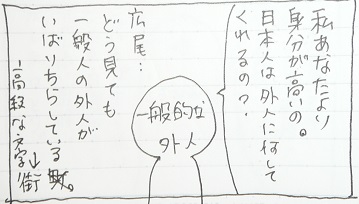 私あなたより
身分が高いの。
日本人は外人に何して
くれるの?
広尾…
どう見ても
一般人の外人が
いばりちらしている
街。
↓
高級な文字
一般的な
外人